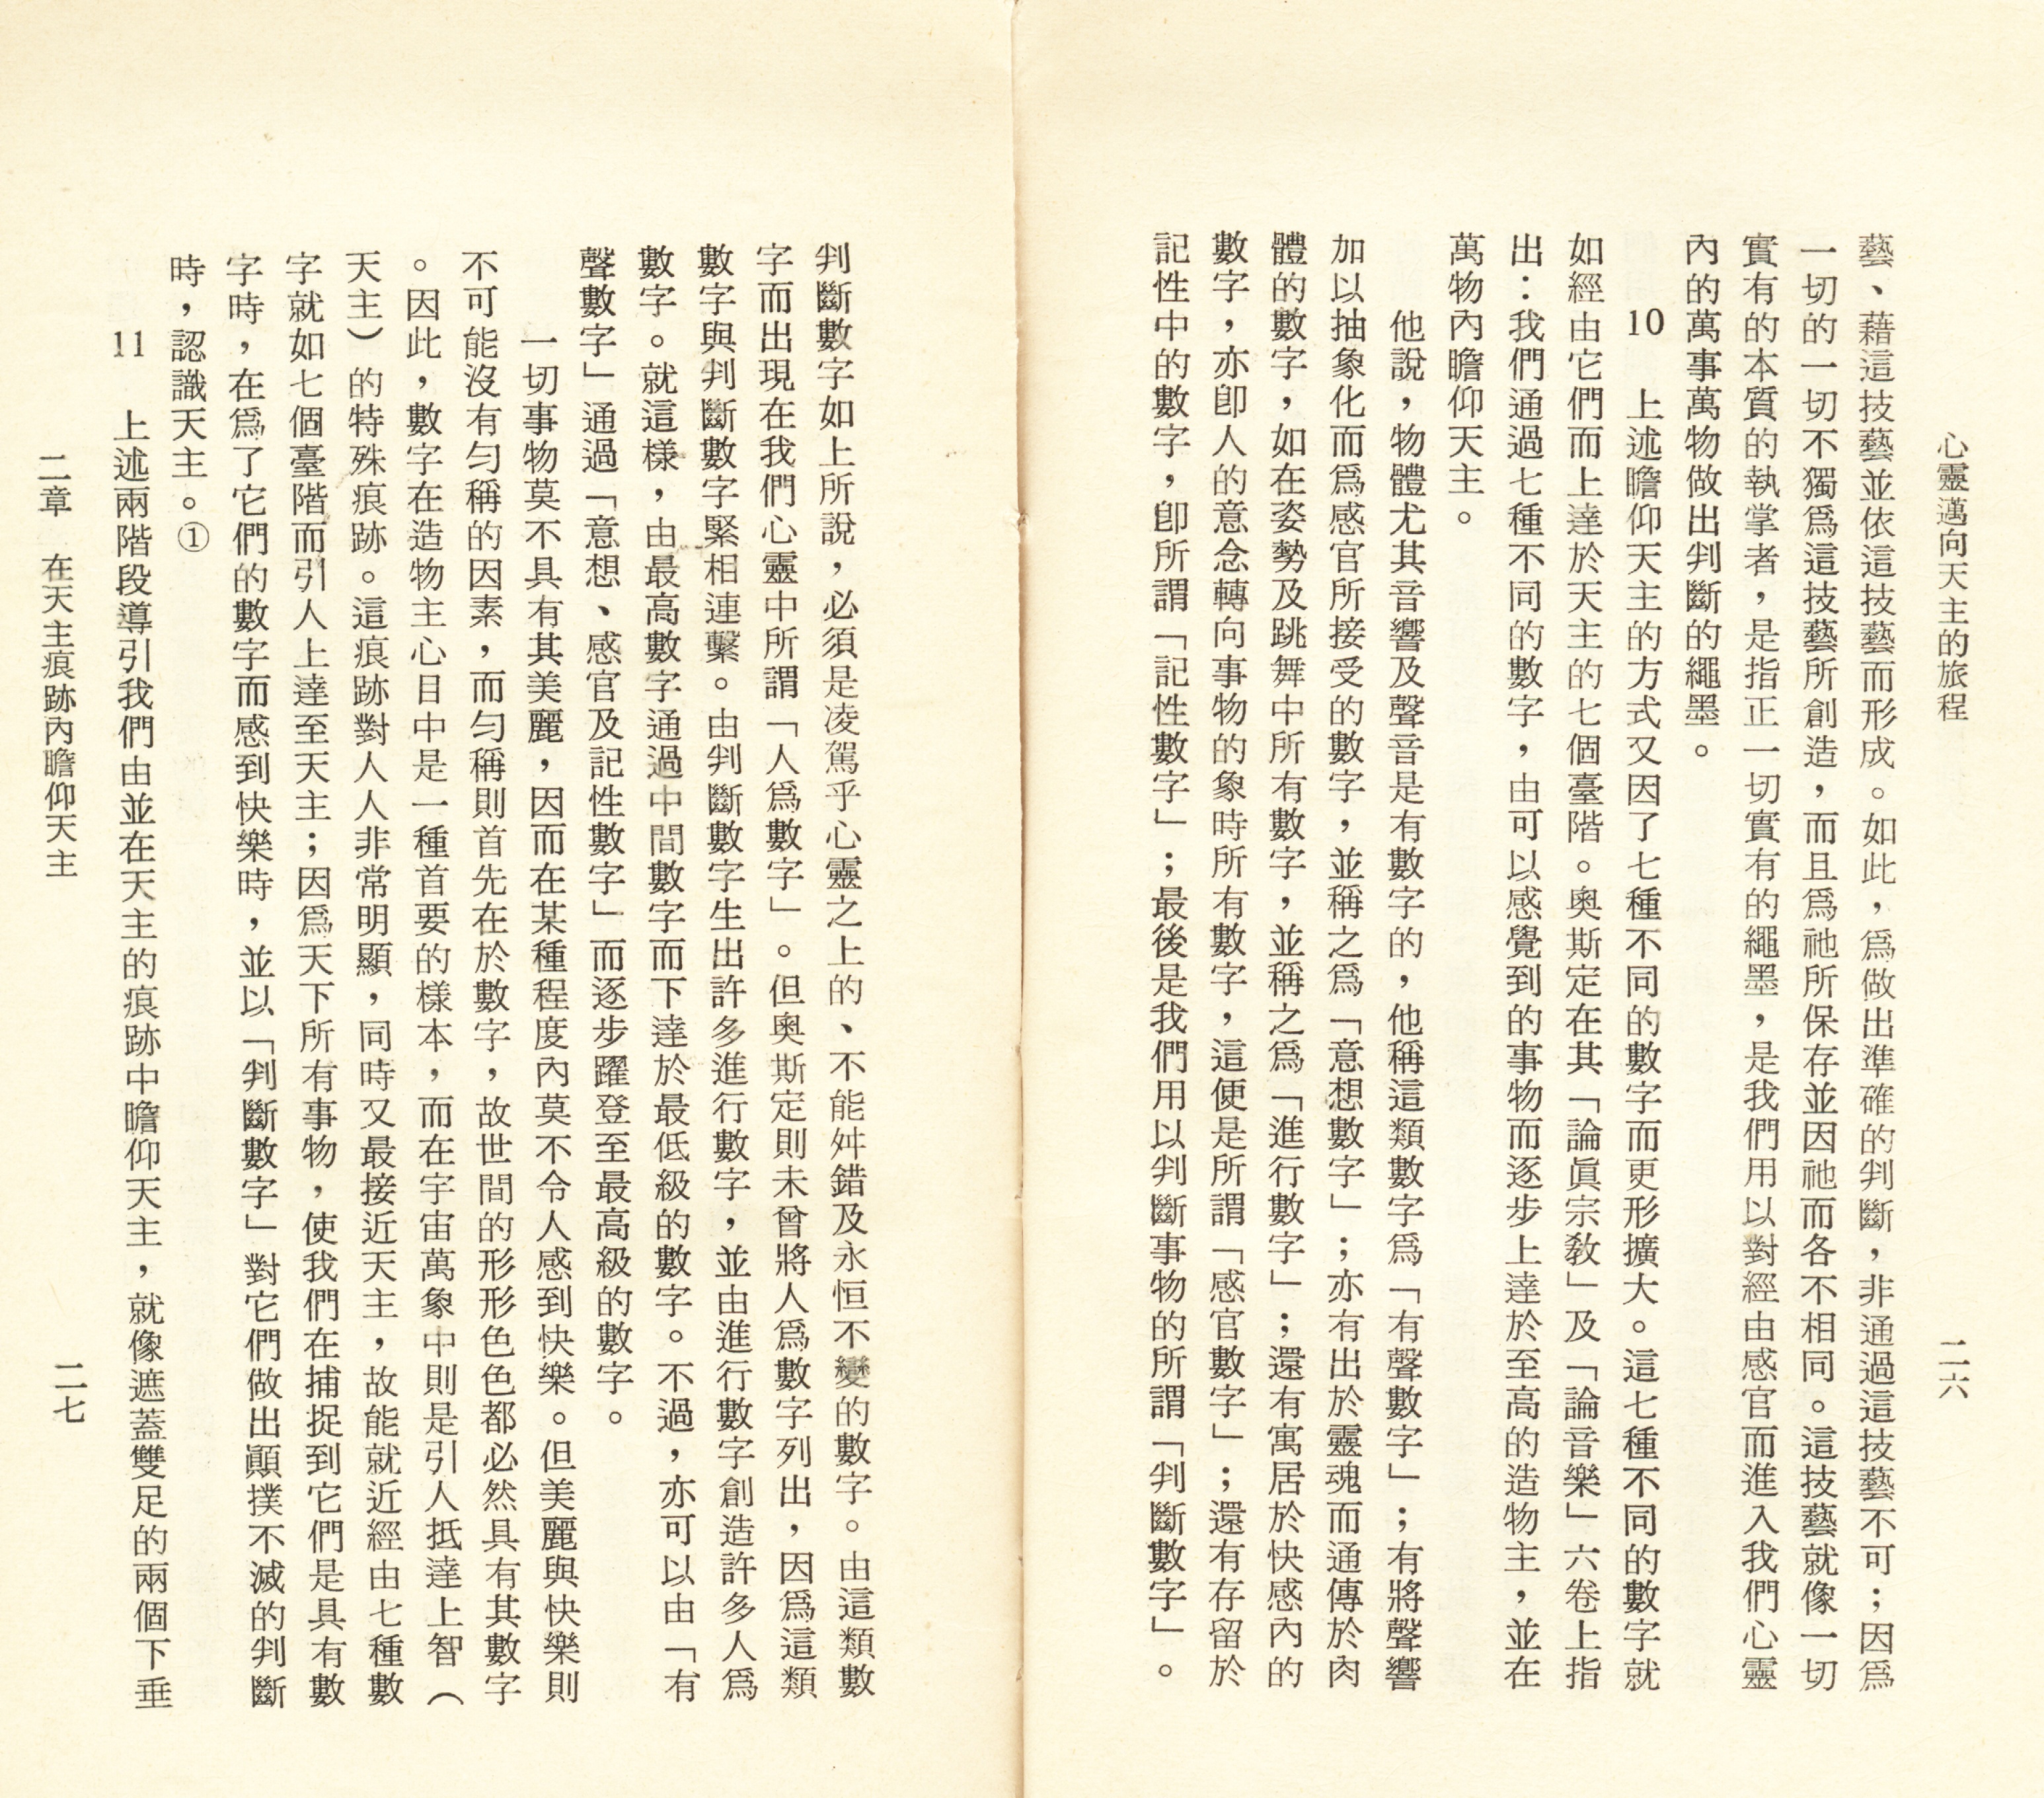 心靈邁向天主的旅程
二六
藝、藉這技藝並依這技藝而形成。如此，爲做出準確的判斷，非通過這技藝不可；因爲
一切的一切不獨爲這技藝所創造，而且爲祂所保存並因祂而各不相同。這技藝就像一切
實有的本質的執掌者，是指正一切實有的繩墨，是我們用以對經由感官而進入我們心靈
內的萬事萬物做出判斷的繩墨。
10 上述瞻仰天主的方式又因了七種不同的數字而更形擴大。這七種不同的數字就
如經由它們而上達於天主的七個臺階。奧斯定在其「論眞宗教」及「論音樂」六卷上指
出：我們通過七種不同的數字，由可以感覺到的事物而逐步上達於至高的造物主，並在
萬物內瞻仰天主。
他說，物體尤其音響及聲音是有數字的，他稱這類數字爲「有聲數字」；有將聲響
加以抽象化而爲感官所接受的數字，並稱之爲「意想數字」；亦有出於靈魂而通傳於肉
體的數字，如在姿勢及跳舞中所有數字，並稱之爲「進行數字」；還有寓居於快感內的
數字，亦卽人的意念轉向事物的象時所有數字，這便是所謂「感官數字」；還有存留於
記性中的數字，卽所謂「記性數字」；最後是我們用以判斷事物的所謂「判斷數字」。
判斷數字如上所說，必須是凌駕乎心靈之上的、不能舛錯及永恒不變的數字。由這類數
字而出現在我們心靈中所謂「人爲數字」。但奧斯定則未曾將人爲數字列出，因爲這類
數字與判斷數字緊相連繫。由判斷數字生出許多進行數字，並由進行數字創造許多人爲
數字。就這樣，由最高數字通過中間數字而下達於最低級的數字。不過，亦可以由「有
聲數字」通過「意想、感官及記性數字」而逐步躍登至最高級的數字。
一切事物莫不具有其美麗，因而在某種程度內莫不令人感到快樂。但美麗與快樂則
不可能沒有勻稱的因素，而勻稱則首先在於數字，故世間的形形色色都必然具有其數字
。因此，數字在造物主心目中是一種首要的樣本，而在宇宙萬象中則是引人抵達上智（
天主）的特殊痕跡。這痕跡對人人非常明顯，同時又最接近天主，故能就近經由七種數
字就如七個臺階而引人上達至天主；因爲天下所有事物，使我們在捕捉到它們是具有數
字時，在爲了它們的數字而感到快樂時，並以「判斷數字」對它們做出顚撲不滅的判斷
時，認識天主。①
11 上述兩階段導引我們由並在天主的痕跡中瞻仰天主，就像遮蓋雙足的兩個下垂
二章 在天主痕跡內瞻仰天主
二七